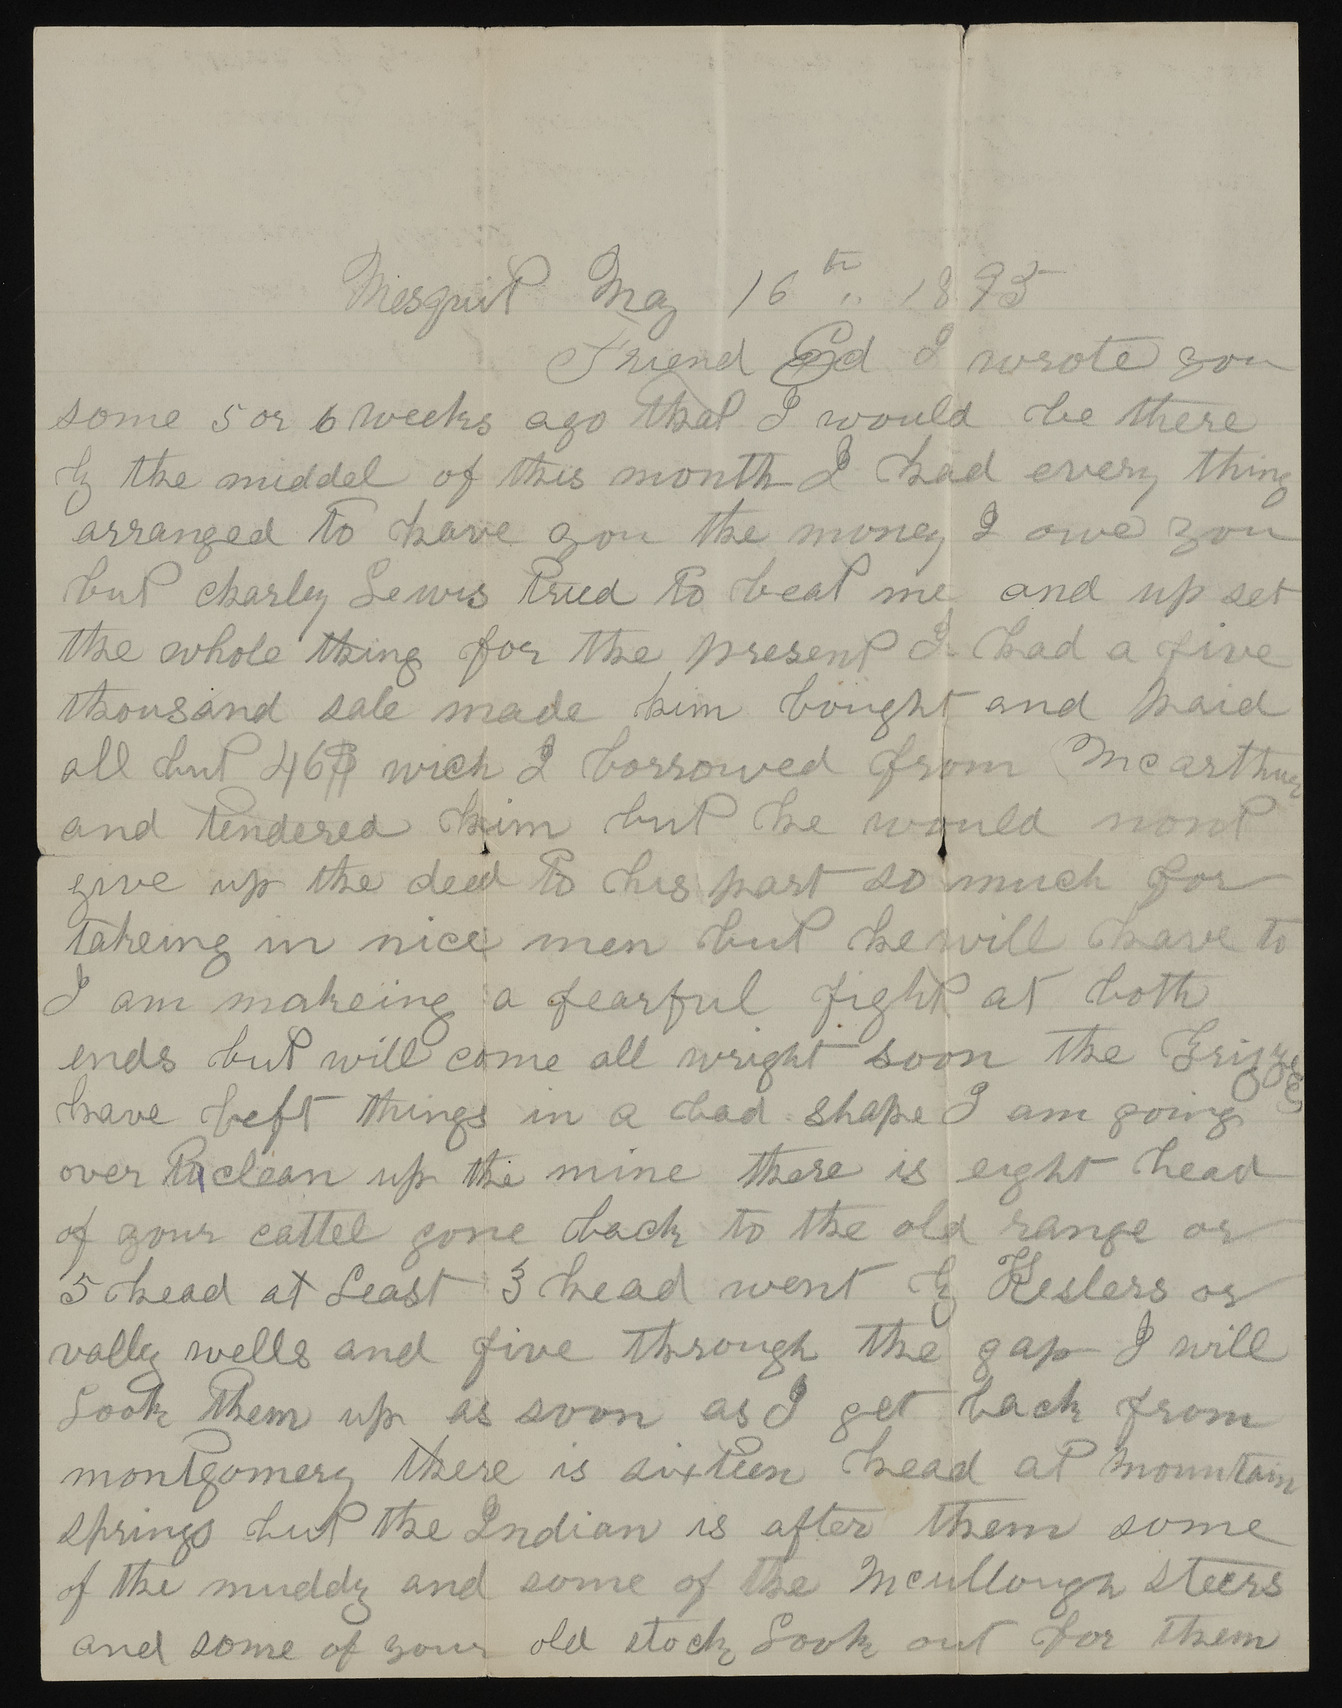 Mesquit May 16th 1895
Friend Ed I wrote you
some 5 or 6 weeks ago that I would be there
by the middel of this month I had every thing
arranged to have you the money I owe you
but charley Lewis tried to beat me and up set
the whole thing for the present I had a five
thousand sale made him bought and paid
all but 46$ wich I borrowed from Mcarthur
and tendered him but he would nont
give up the deed to his part so much for
takeing in nice men but he will have to
I am makeing a fearful fight at both
ends but will come all wright soon the
have left things in a bad shape I am going
over to clean up the mine there is eight head
of your cattel gone back to the old range or
5 head at Least 3 head went by Keslers or
vally wells and five through the gap I will
Look them up as soon as I get back from
montgomery there is sixteen head at mountain
springs but the Indian is after them some
of the muddy and some of the Mcullough steers
and some of your old stock Look out for them